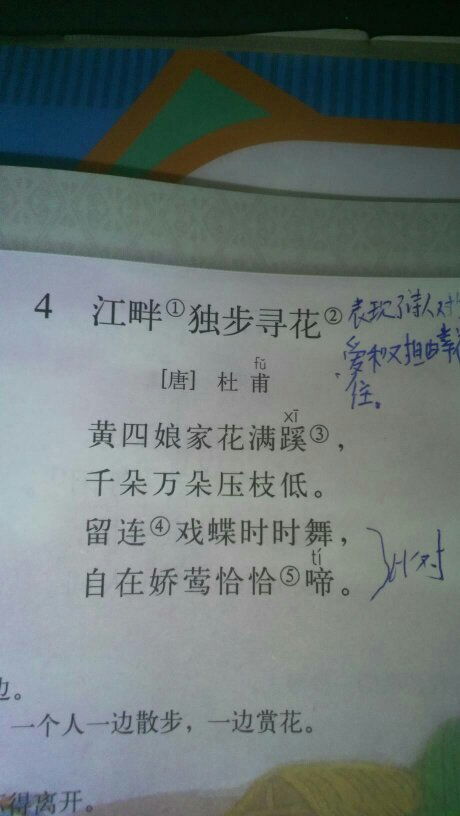 4 江畔①独步寻花②
表现了诗人对
爱和又担由幸福
住。
[唐] 杜甫
fǔ
xī
黄四娘家花满蹊③，
千朵万朵压枝低。
留连④戏蝶时时舞，
tí
自在娇莺恰恰⑤啼。
对
边。
一个人一边散步，一边赏花。
得离开。